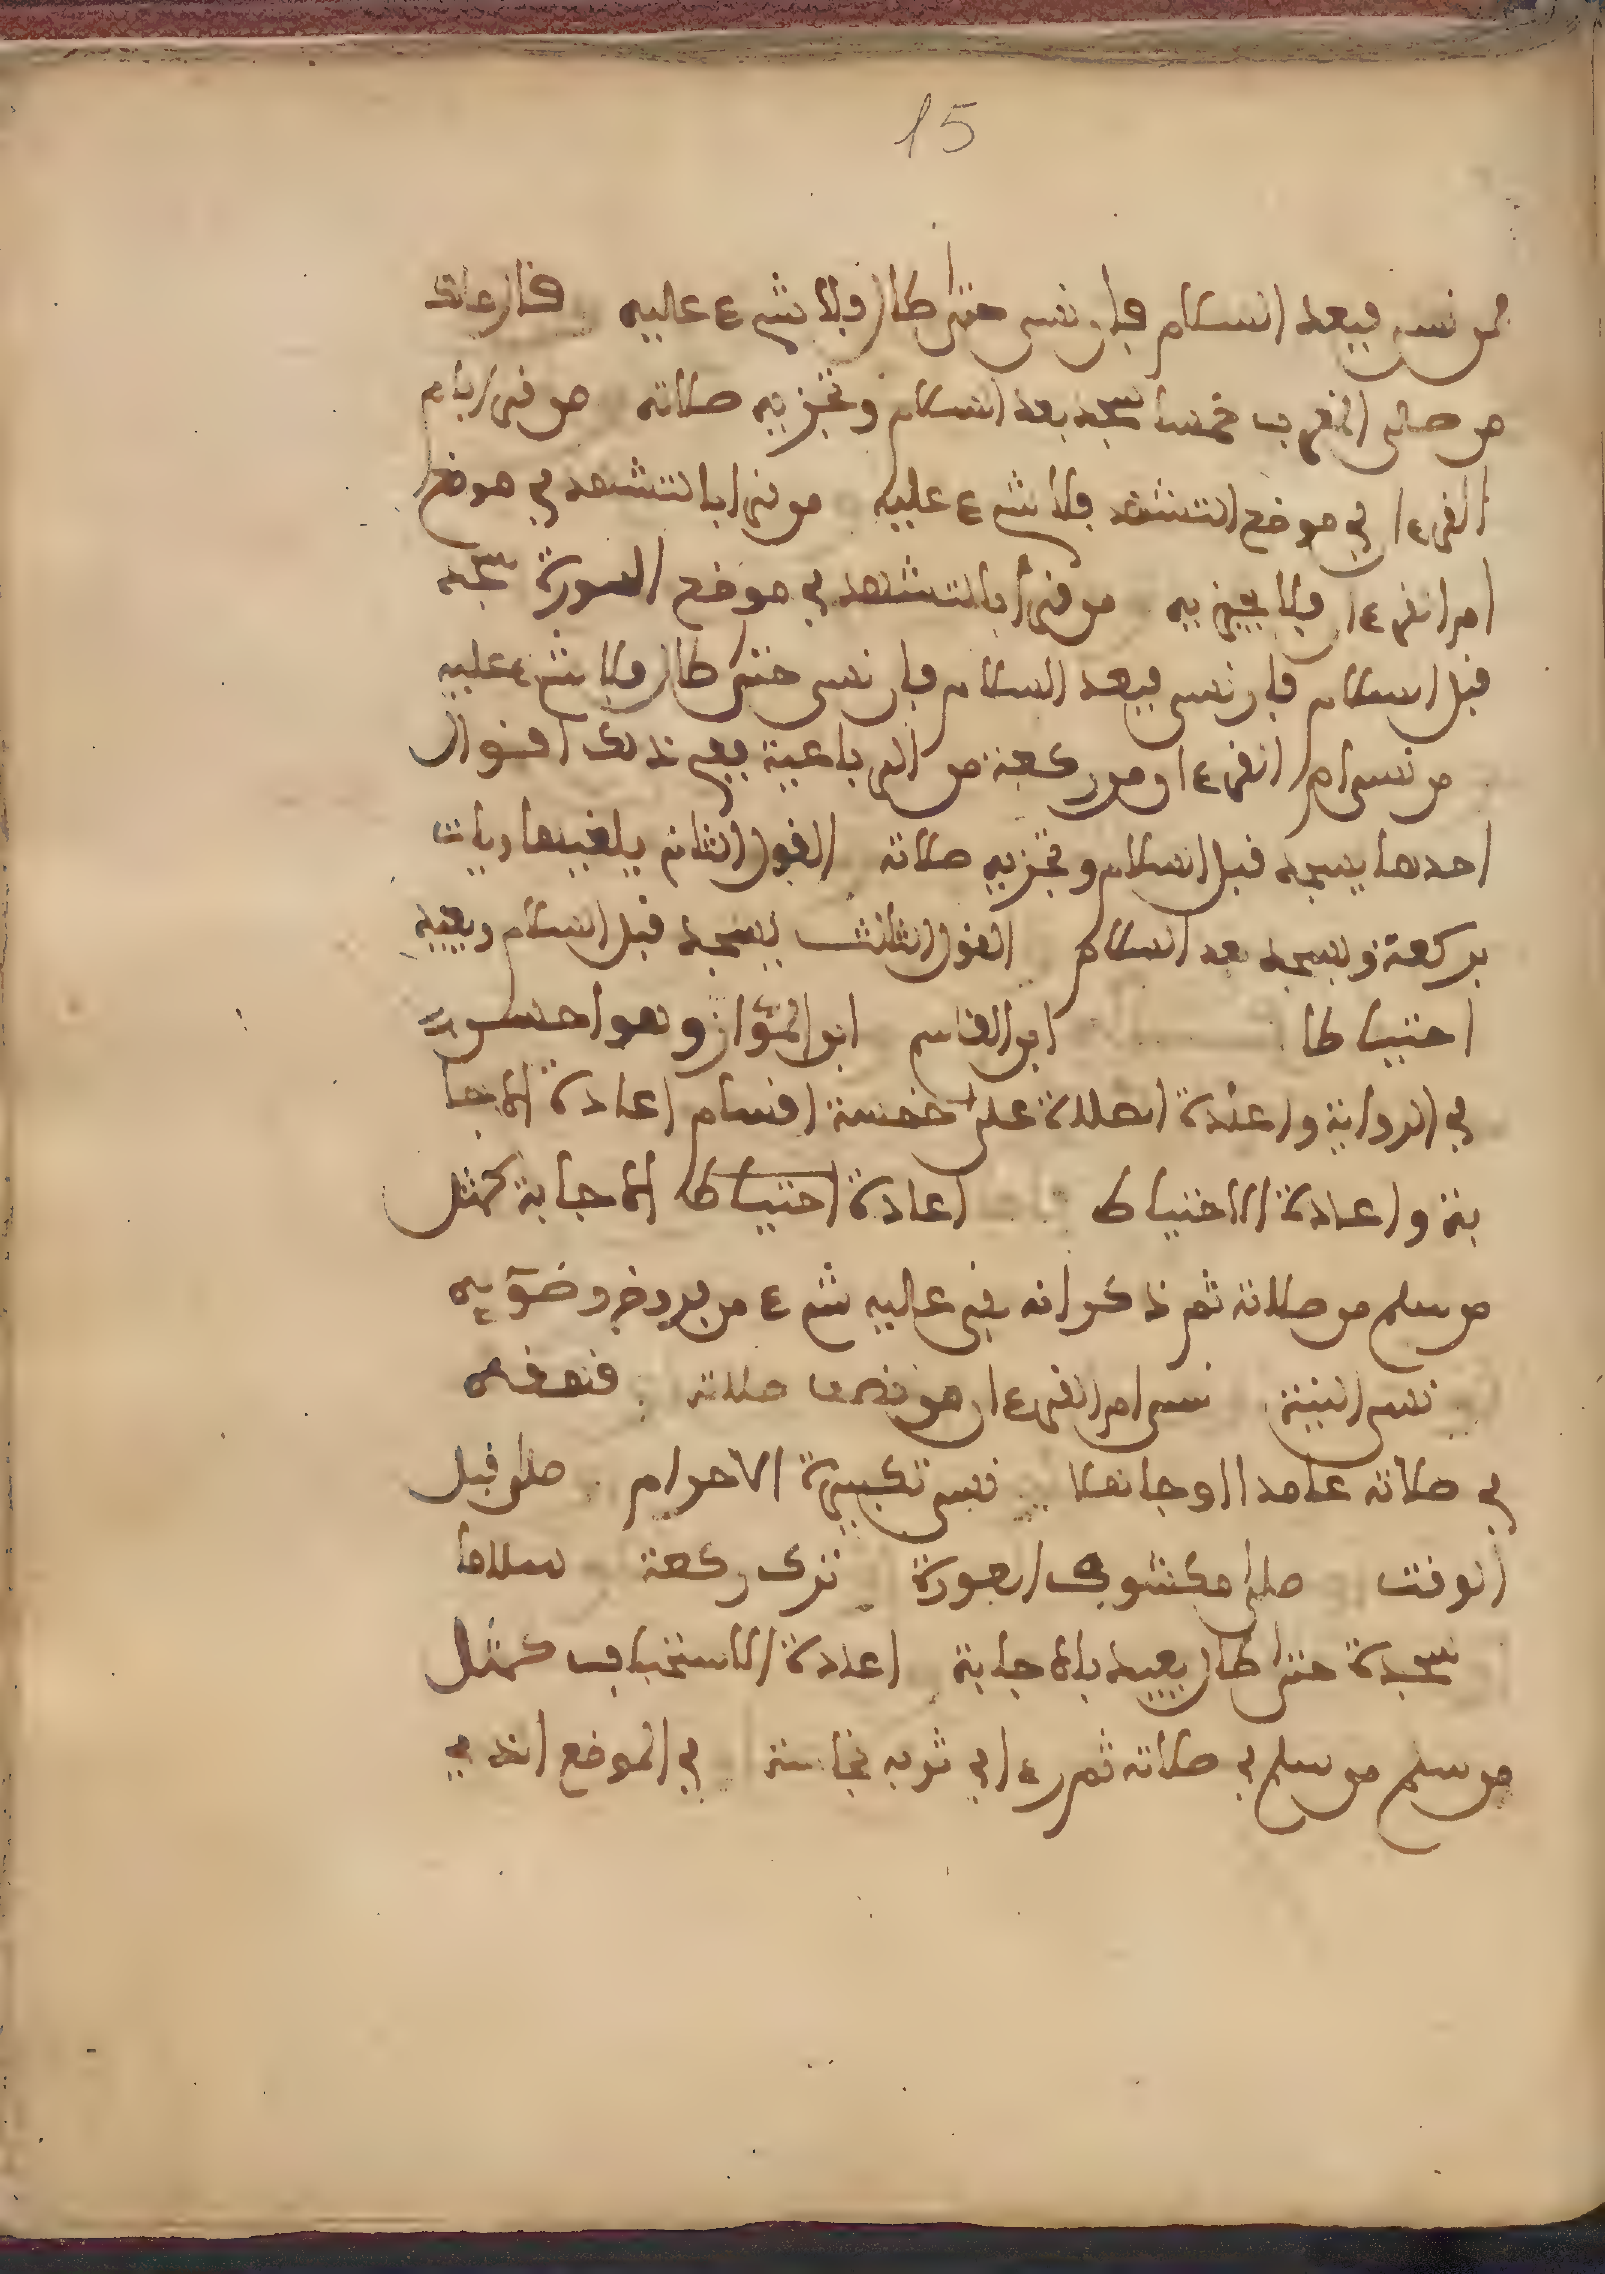 15
من نسي فبعد السلام فان نسي حتى طال فلا شيء عليه فان عاتد
من صلى المغرب خمسا سجد بعد السلام وتجزيه صلاته من قرا بام
القرءا في موضع التشهد فلا شيء عليه من قرا بالتشهد في موضع
ام القرءا فلا يجزيه من قرا بالتشهد في موضع السورة سجد
قبل السلام فان نسي فبعد السلام فان نسي حتى طال فلا شيء عليه
من نسي ام القرءا ومن ركعة من الرباعية ففي ذلك اقوال
احدها يسجد قبل السلام وتجزيه صلاته القول الثاني يلغيها ويات
بركعة ويسجد بعد السلام القول الثالث يسجد قبل السلام ويعيد
احتياطا ابن القاسم ابن المواز وهو احسن
في الرواية واعدة الصلاة على خمسة اقسام اعادة الاجا
بة واعادة الاحتياط اعادة احتياطا الاجابة كمثل
من سلم من صلاته ثم ذكر انه بقي عليه شيء من فروض وضوءيه
نسي النية نسي ام القرءا من نصف صلاته قهقهه
في صلاته عامدا او جاهلا نسي تكبيرة الاحرام صلى قبل
الوقت صلى مكشوف العورة ترك ركعة سلاما
سجدة حتى طال يعيد بالاجابة اعادة الاستحباب كمثل
من سلم من سلم في صلاته ثم رءا في ثوبه نجاسة في الموضع الذي